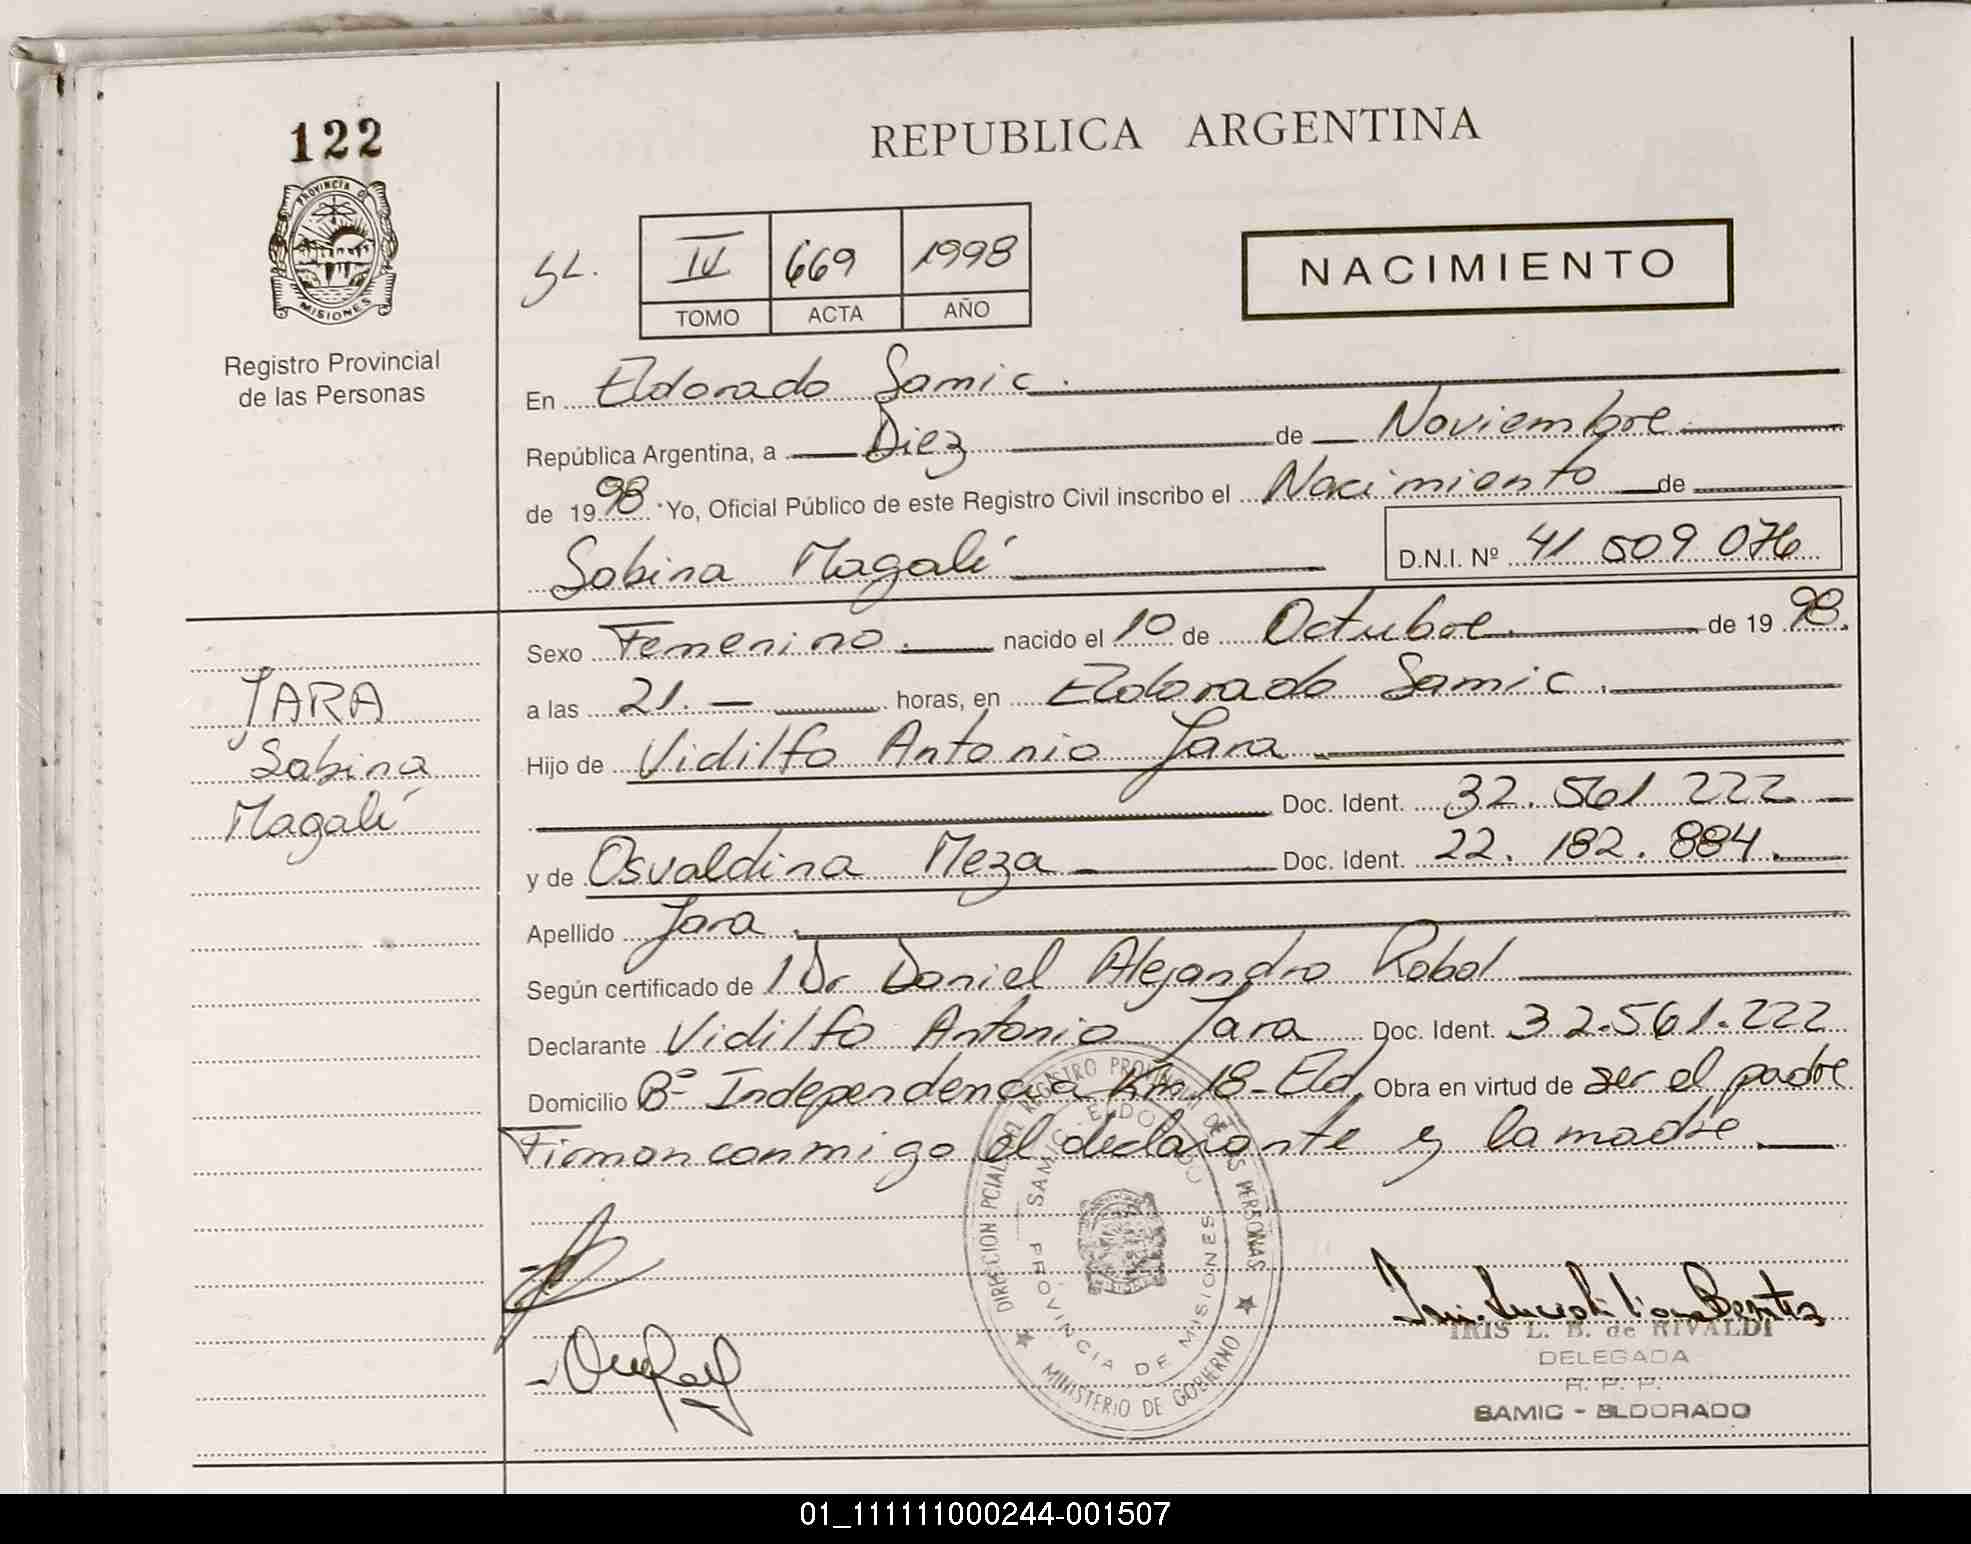 122
REPUBLICA ARGENTINA
PROVINCIA DE
MISIONES
Registro Provincial
de las Personas
IV 669 1998
TOMO ACTA AÑO
NACIMIENTO
En Eldorado Samic.
República Argentina, a Diez de Noviembre
de 1998. Yo, Oficial Público de este Registro Civil inscribo el Nacimiento de
Sabina Magalí D.N.I. Nº 41 509 076
Sexo Femenino. nacido el 10 de Octubre. de 1998.
a las 21. horas, en Eldorado Samic.
Hijo de Vidilfo Antonio Jara
Doc. Ident. 32.561 222
y de Osvaldina Meza Doc. Ident. 22.182.884.
Apellido Jara.
Según certificado de 1 Dr Daniel Alejandro Robol
Declarante Vidilfo Antonio Jara Doc. Ident. 32.561.222
Domicilio Bº Independencia Km 18-Eld. Obra en virtud de ser el padre
Firman conmigo el declarante y la madre.
JARA
Sabina
Magalí
DIRECCION PCIAL DEL REGISTRO PROVINCIAL DE LAS PERSONAS
SAMIC - ELDORADO
PROVINCIA DE MISIONES
MINISTERIO DE GOBIERNO
IRIS L. B. de RIVALDI
DELEGADA
R. P. P.
SAMIC - ELDORADO
01_111111000244-001507